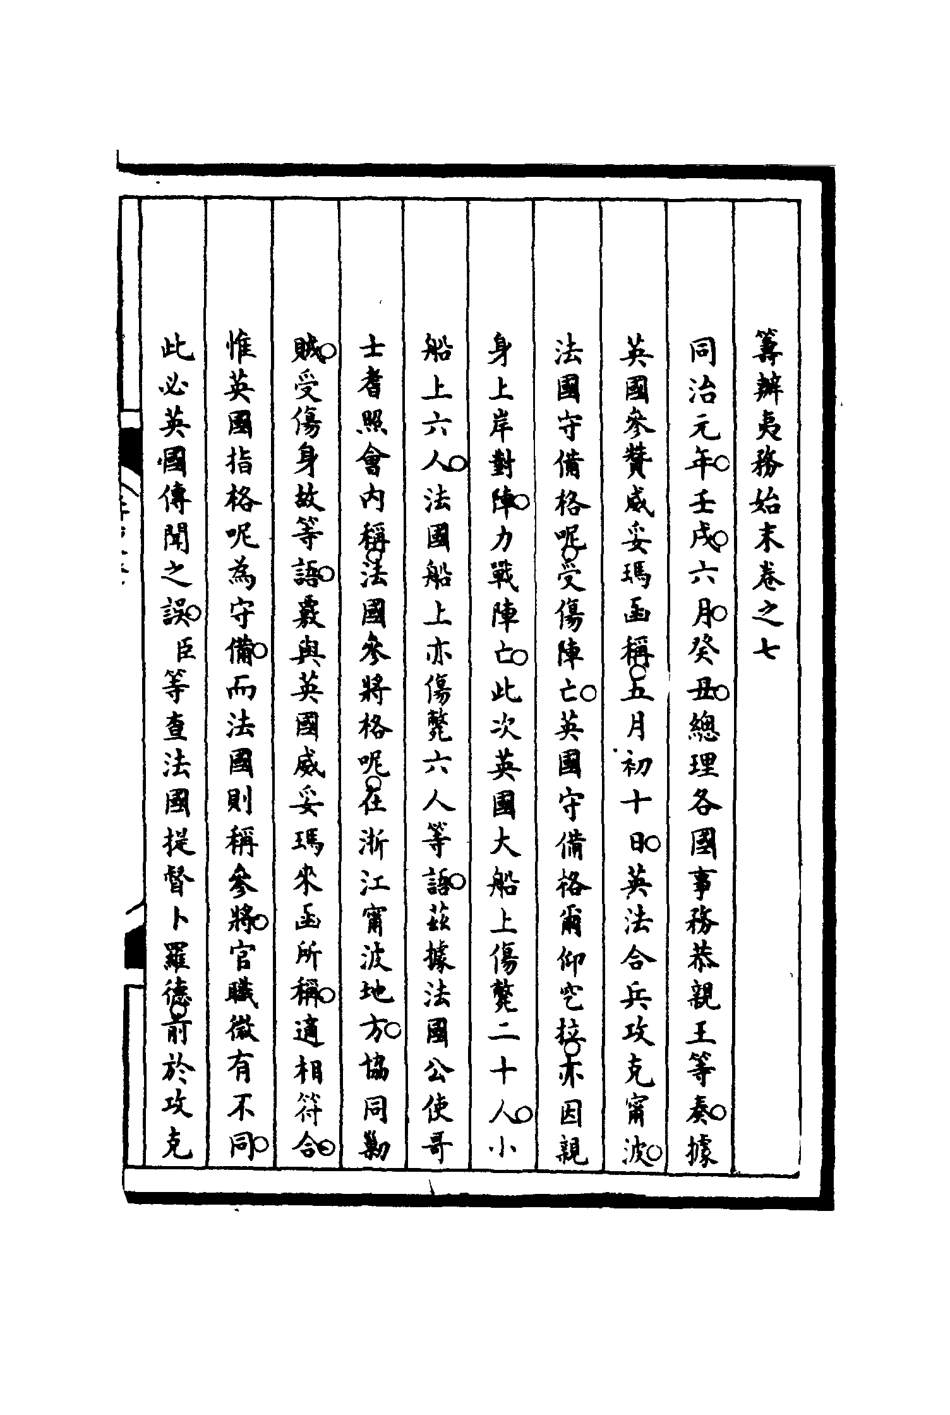 籌辦夷務始末卷之七
同治元年。壬戌。六月。癸丑。總理各國事務恭親王等奏。據
英國參贊威妥瑪函稱。五月初十日。英法合兵攻克甯波。
法國守備格呢。受傷陣亡。英國守備格爾仰空拉。亦因親
身上岸對陣。力戰陣亡。此次英國大船上傷斃二十人。小
船上六人。法國船上亦傷斃六人等語。茲據法國公使哥
士耆照會內稱。法國參將格呢。在浙江甯波地方。協同勦
賊。受傷身故等語。覈與英國威妥瑪來函所稱。適相符合。
惟英國指格呢為守備。而法國則稱參將。官職微有不同。
此必英國傳聞之誤。臣等查法國提督卜羅德。前於攻克